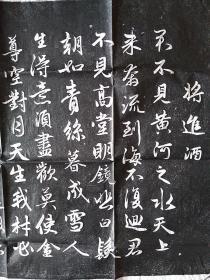 將進酒
君不見黃河之水天上
來奔流到海不復迴君
不見高堂明鏡悲白髮
朝如青絲暮成雪人
生得意須盡歡莫使金
尊空對月天生我材必